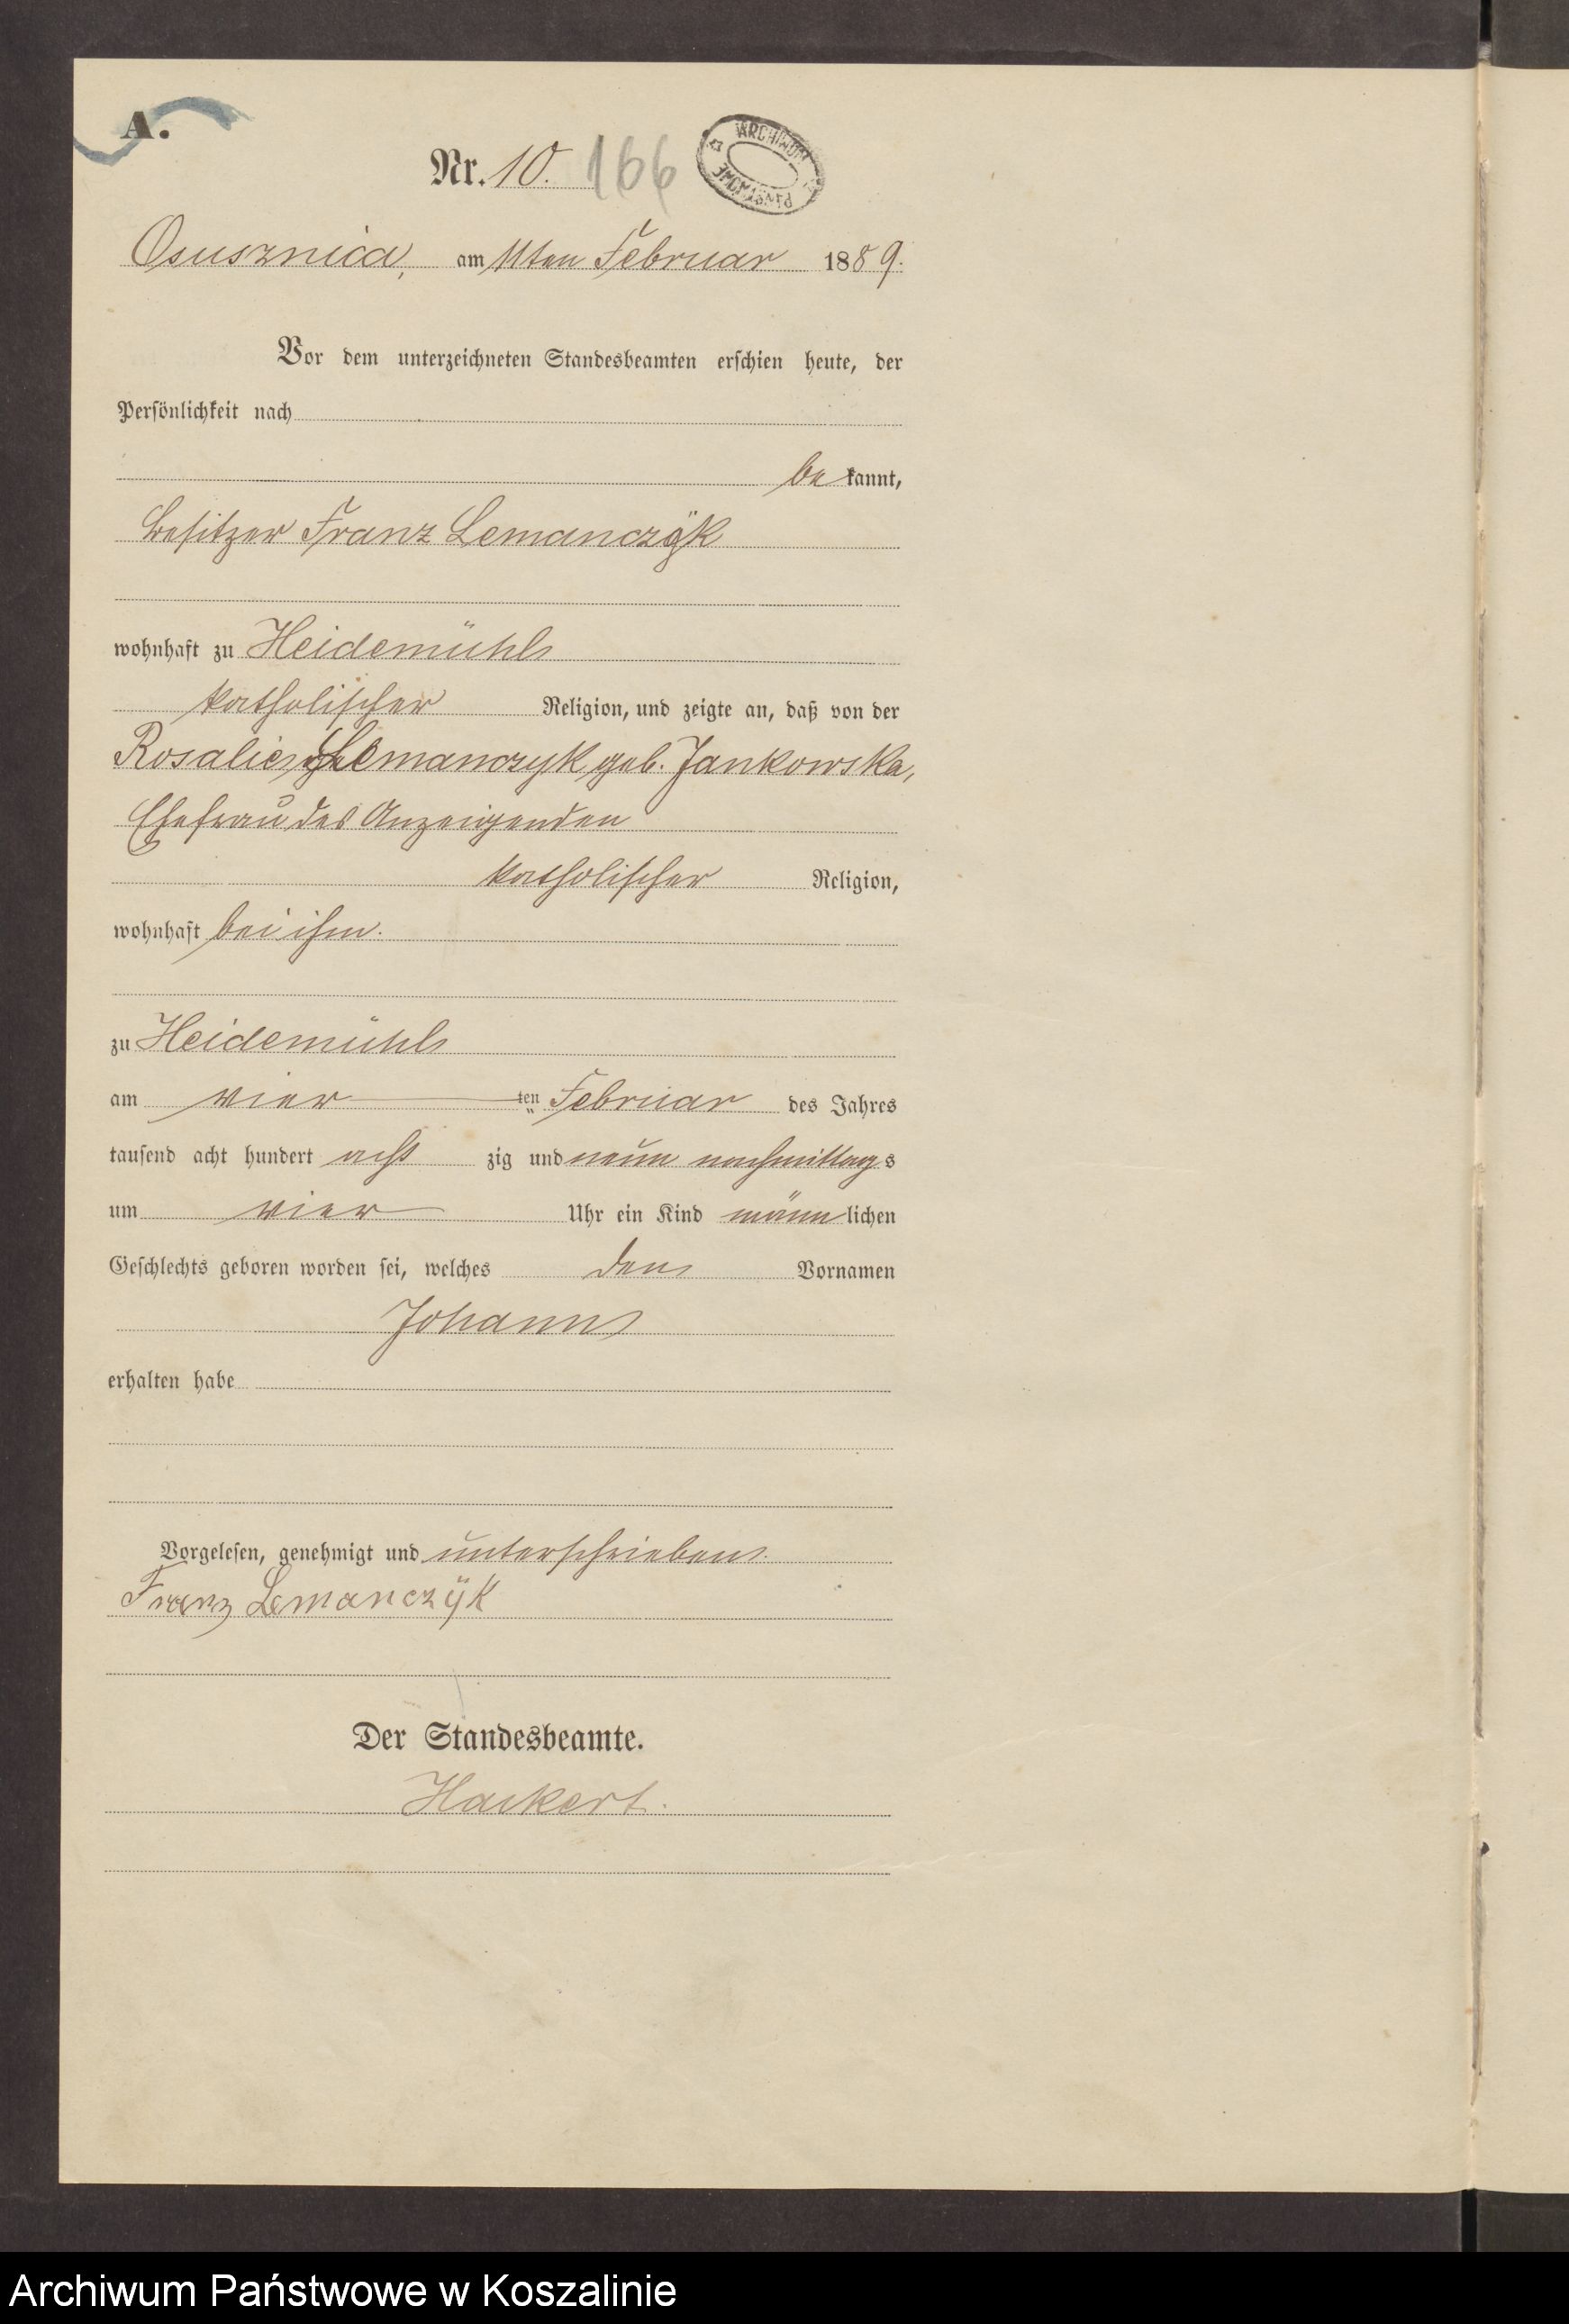 A.
Nr. 10. 166
ARCHIWUM PAŃSTWOWE
Osusznica, am 11ten Februar 1889.
Vor dem unterzeichneten Standesbeamten erschien heute, der
Persönlichkeit nach
be kannt,
Besitzer Franz Lemanczÿk
wohnhaft zu Heidemühl
katholischer Religion, und zeigte an, daß von der
Rosalie Lemanczyk geb. Jankowska,
Ehefrau des Anzeigenden
katholischer Religion,
wohnhaft bei ihm.
zu Heidemühl
am vier ten Februar des Jahres
tausend acht hundert acht zig und neun nachmittags
um vier Uhr ein Kind männlichen
Geschlechts geboren worden sei, welches den Vornamen
Johann
erhalten habe
Vorgelesen, genehmigt und unterschrieben.
Franz Lemanczÿk
Der Standesbeamte.
Hackert.
Archiwum Państwowe w Koszalinie